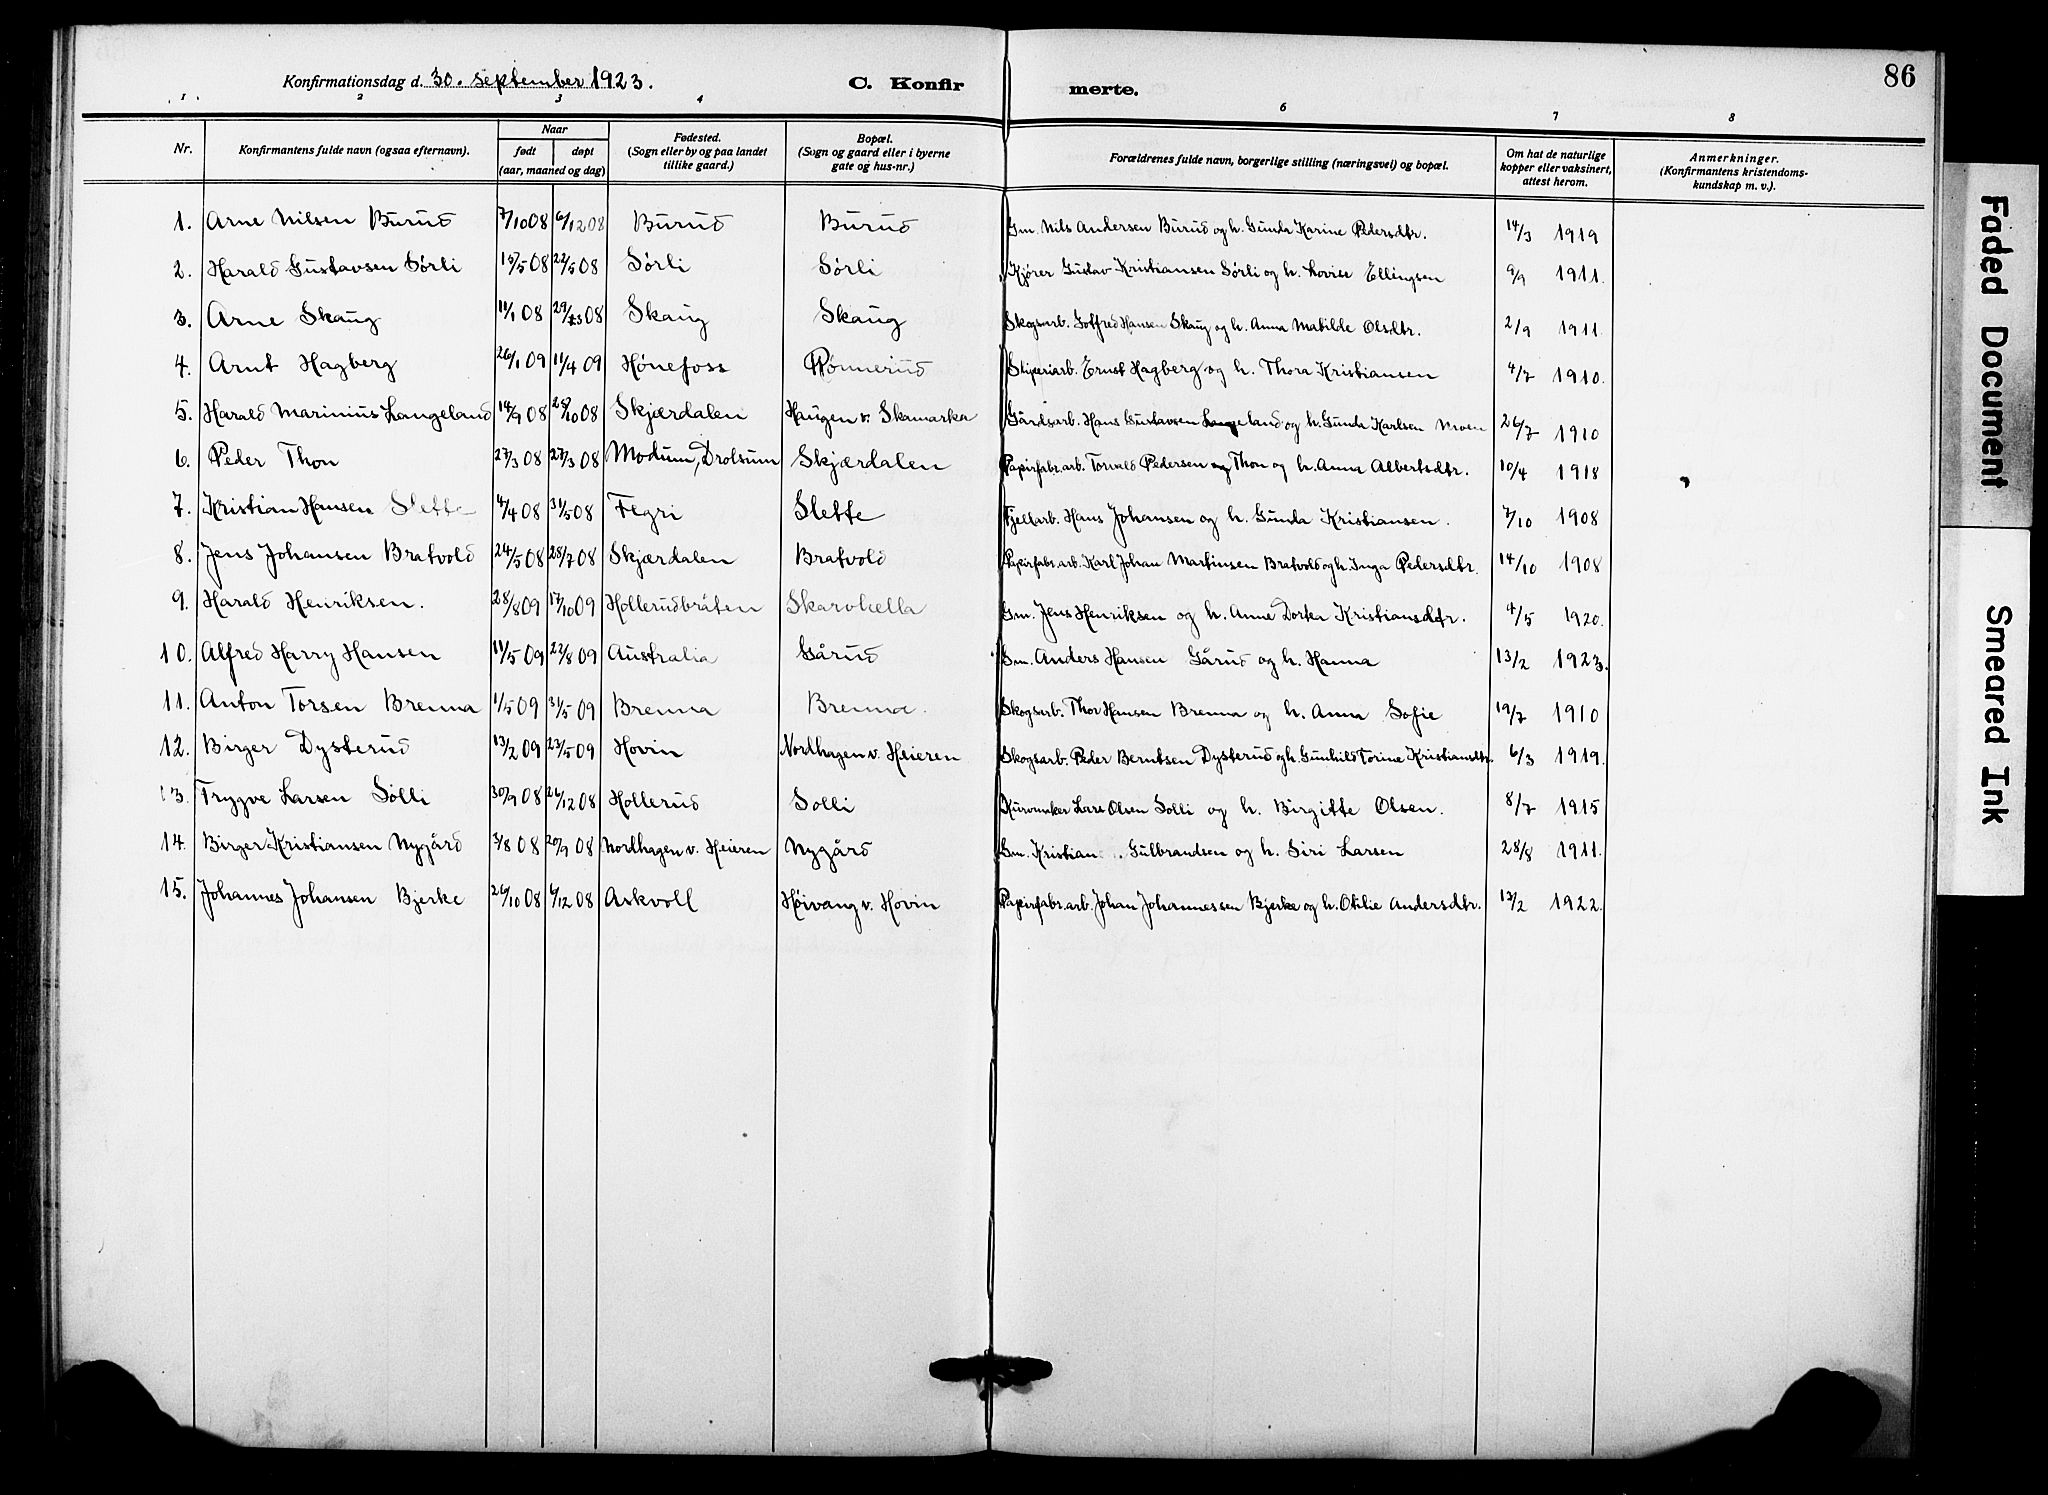 Konfirmationsdag d. 30. september 1923.
C. Konfir merte.
86
1 2 3 4 6 7 8
Nr.
Konfirmantens fulde navn (ogsaa efternavn).
Naar
født døpt
(aar, maaned og dag)
Fødested.
(Sogn eller by og paa landet
tillike gaard.)
Bopæl.
(Sogn og gaard eller i byerne
gate og hus-nr.)
Forældrenes fulde navn, borgerlige stilling (næringsvei) og bopæl.
Om hat de naturlige
kopper eller vaksinert,
attest herom.
Anmerkninger.
(Konfirmantens kristendoms-
kundskap m. v.).
1. Arne Nilsen Burud 7/10 08 6/12 08 Burud Burud Gm. Nils Andersen Burud og h. Gunda Karine Pedersdtr. 14/3 1919
2. Harald Gustavsen Sørli 15/5 08 22/5 08 Sørli Sørli Kjører Gustav Kristiansen Sørli og h. Lovise Ellingsen 9/9 1911.
3. Arne Skaug 11/1 08 29/3 08 Skaug Skaug Skogsarb. Gotfred Hansen Skaug og h. Anna Matilde Olsdtr. 2/9 1911.
4. Arnt Hagberg 26/1 09 11/4 09 Hønefoss Rønnerud Sliperiarb. Ernst Hagberg og h. Thora Kristiansen 4/7 1910.
5. Harald Marinius Langeland 14/9 08 25/10 08 Skjærdalen Haugen v. Skamarka Gårdsarb. Hans Gustavsen Langeland og h. Gunda Karlsen Moen 26/7 1910
6. Peder Thon 27/3 08 27/3 08 Modum, Drolsum Skjærdalen Papirfabr.arb. Torvald Pedersen Thon og h. Anna Albertsdtr. 10/4 1918
7. Kristian Hansen Slette 4/4 08 31/5 08 Fegri Slette Fjellarb. Hans Johansen og h. Gunda Kristiansen. 7/10 1908
8. Jens Johansen Bratvold 24/5 08 28/7 08 Skjærdalen Bratvold Papirfabr.arb. Karl Johan Martinsen Bratvold og h. Inga Pedersdtr. 14/10 1908
9. Harald Henriksen. 28/8 09 17/10 09 Hollerudbråten Skarvhella Gm. Jens Henriksen og h. Anne Dorka Kristiansdtr. 4/5 1920.
10. Alfred Harry Hansen 11/5 09 22/8 09 Australia Gårud Gm. Anders Hansen Gårud og h. Hanna 13/2 1923.
11. Anton Torsen Brenna 1/5 09 31/5 09 Brenna Brenna. Skogsarb. Thor Hansen Brenna og h. Anna Sofie 19/7 1910
12. Birger Dysterud 13/2 09 23/5 09 Hovin Nordhagen v. Heieren Skogsarb. Peder Berntsen Dysterud og h. Gunhild Torine Kristiansdtr. 6/3 1919.
13. Trygve Larsen Solli 30/9 08 26/12 08 Hollerud Solli Kurvmaker Lars Olsen Solli og h. Birgitte Olsen. 8/7 1915
14. Birger Kristiansen Nygård 3/8 08 20/9 08 Nordhagen v. Heieren Nygård Gm. Kristian Gulbrandsen og h. Siri Larsen 28/8 1911.
15. Johannes Johansen Bjerke 26/10 08 6/12 08 Askvoll Høivang v. Hovin Papirfabr.arb. Johan Johannessen Bjerke og h. Othlie Andersdtr. 13/2 1922.
Faded Document
Smeared Ink